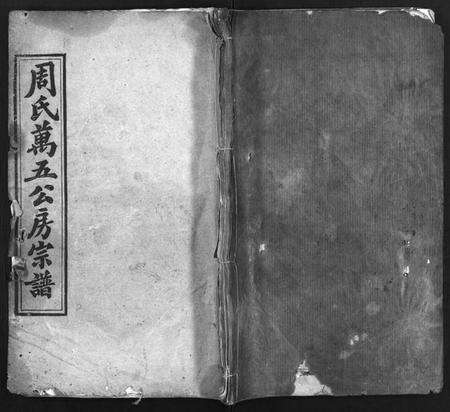 周氏萬五公房宗譜